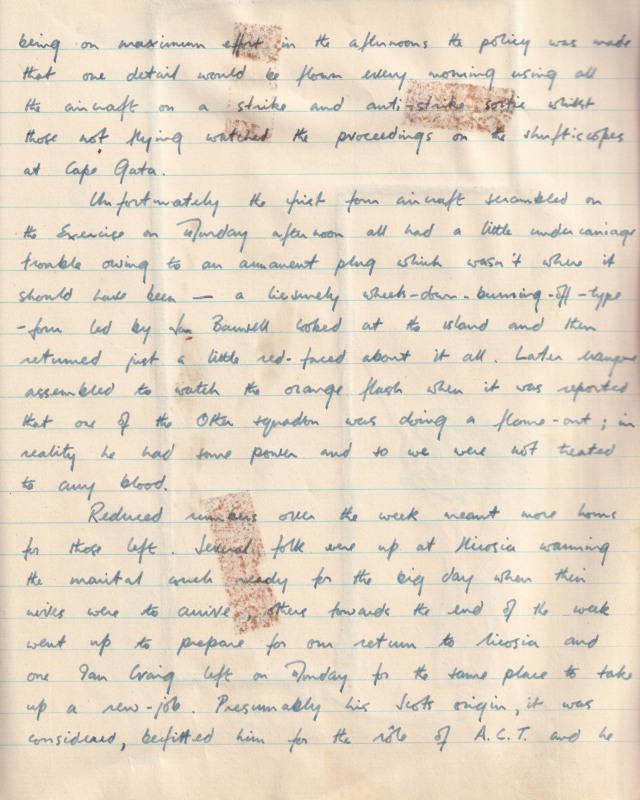 being on maximum effort in the afternoons the policy was made
that one detail would be flown every morning using all
the aircraft on a strike and anti-strike sortie whilst
those not flying watched the proceedings on the shuftiscopes
at Cape Gata.
Unfortunately the first four aircraft scrambled on
the Exercise on Monday afternoon all had a little undercarriage
trouble owing to an armament plug which wasn't where it
should have been — a leisurely wheels-down-burning-off-type
-form led by Ian Barwell looked at the island and then
returned just a little red-faced about it all. Later
assembled to watch the orange flash when it was reported
that one of the Other squadron was doing a flame-out; in
reality he had some power and so we were not treated
to any blood.
Reduced numbers over the week meant more hours
for those left. Several folk were up at Nicosia warming
the marital couch ready for the big day when their
wives were to arrive, others towards the end of the week
went up to prepare for our return to Nicosia and
one Ian Craig left on Monday for the same place to take
up a new-job. Presumably his Scots origin, it was
considered, befitted him for the rôle of A.C.T. and he